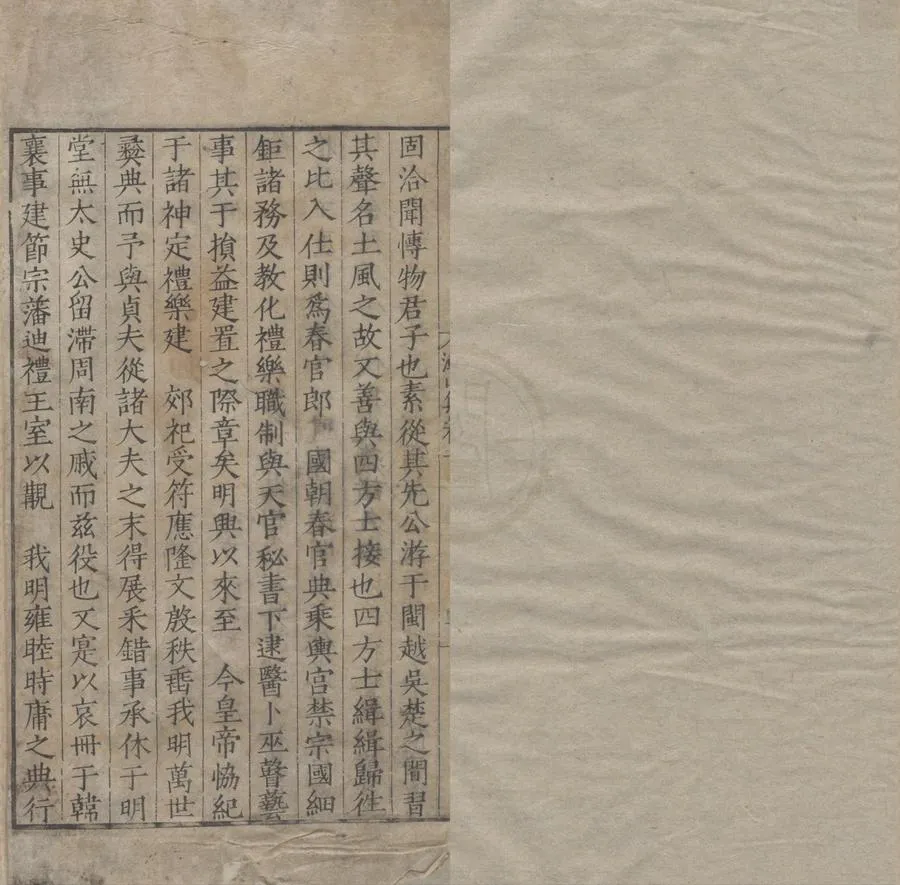 固洽聞慱物君子也素從其先公游于閩越吳楚之間習
其聲名土風之故又善與四方士接也四方士緝緝歸徃
之比入仕則爲春官郎 國朝春官典乘輿宫禁宗國細
鉅諸務及教化禮樂職制與天官秘書下逮醫卜巫瞽藝
事其于損益建置之際章矣明興以來至 今皇帝恊紀
于諸神定禮樂建 郊祀受符應隆文殷秩垂我明萬世
彜典而予與貞夫從諸大夫之末得展釆錯事承休于明
堂無太史公留滯周南之戚而兹役也又寔以哀冊于韓
襄事建節宗藩迪禮王室以觀 我明雍睦時庸之典行